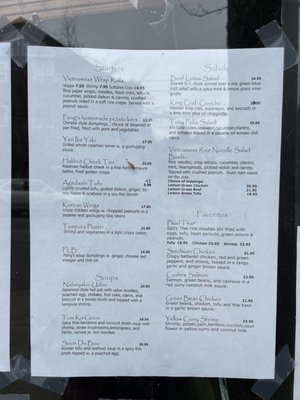 Starters
Vietnamese Wrap Rolls
Veggie 7.50 Shrimp 7.95 Softshell Crab 14.95
Rice paper wraps, noodles, fresh mint, lettuce,
cucumber, pickled daikon & carrots, crushed
peanuts rolled in a soft rice crepe. Served with a
peanut sauce.
Feng's homemade potstickers
Chinese style dumplings, choice of steamed or
pan fried, filled with pork and vegetables
Yari Ika Yaki 17.95
Grilled whole calamari serve w. a gochujang
sauce.
Halibut Cheek Tem
Alaskan halibut cheek in a fine herb tempura
batter, fried golden crispy
Agedashi Tofu
Lightly crusted tofu, grated daikon, ginger, bo-
nito flakes & scallions in a soy fish broth
Korean Wings 17.95
Crispy chicken wings w. chopped peanuts in a
sesame and gochujang bbq sauce.
Tempura Platter 21.95
Shrimp and vegetables in a light crispy batter
FLB 14.95
Feng's soup dumplings w. ginger, chinese red
vinegar and chili oil.
Soups
Nabeyaki Udon 20.95
Japanese style hot pot with udon noodles,
poached egg, shiitake, fish cake, clams, and
broccoli in a bonito broth and topped with a
tempura shrimp.
Tom Ka Goon 19.95
Spicy thai lemamind and coconut broth soup with
shrimp, straw mushrooms, lemongrass, and
herbs; served w. rice noodles.
Soon Du Bou
Korean tofu and seafood soup in a spicy fish
broth topped w. a poached egg.
Salads
Beef Lotus Salad
root salad with a spicy mint & lemon grass vinai-
grette
King Crab Ceviche
Alaskan king crab, asparagus, and avocado in
a lime mint olive oil vinaigrette.
Tuna Poke Salad
Ahi tuna cubes, seaweed, cucumber, cilantro,
and tomato tossed in a sesame oil korean chili
sauce.
Vietnamese Rice Noodle Salad
Bowls
Rice noodles, crisp lettuce, cucumber, cilantro,
mint, beansprouts, pickled radish and carrots.
Topped with crushed peanuts. Nuoc nam sauce
on the side.
Choice of toppings:
Lemon Grass Chicken
Lemon Grass Beef
Lemon Grass Tofu
Favorites
Phad Thai*
Spicy thai rice noodles stir fried with
eggs, tofu, bean sprouts, green onions &
peanuts.
Tofu 18.95 Chicken 20.95 Shrimp 22.95
Szechuan Chicken 21.95
Crispy battered chicken, red and green
peppers, and onions, tossed in a tangy
garlic and ginger brown sauce.
Cashew Salmon 23.95
Salmon, green beans, and cashews in a
red curry coconut milk sauce.
Green Bean Chicken 21.95
Green beans, chicken, tofu and thai basil
in a garlic brown sauce.
Yellow Curry Shrimp 23.95
Shrimp, potato, yam, bamboo, zucchini, cauli
flower in yellow curry and coconut milk.